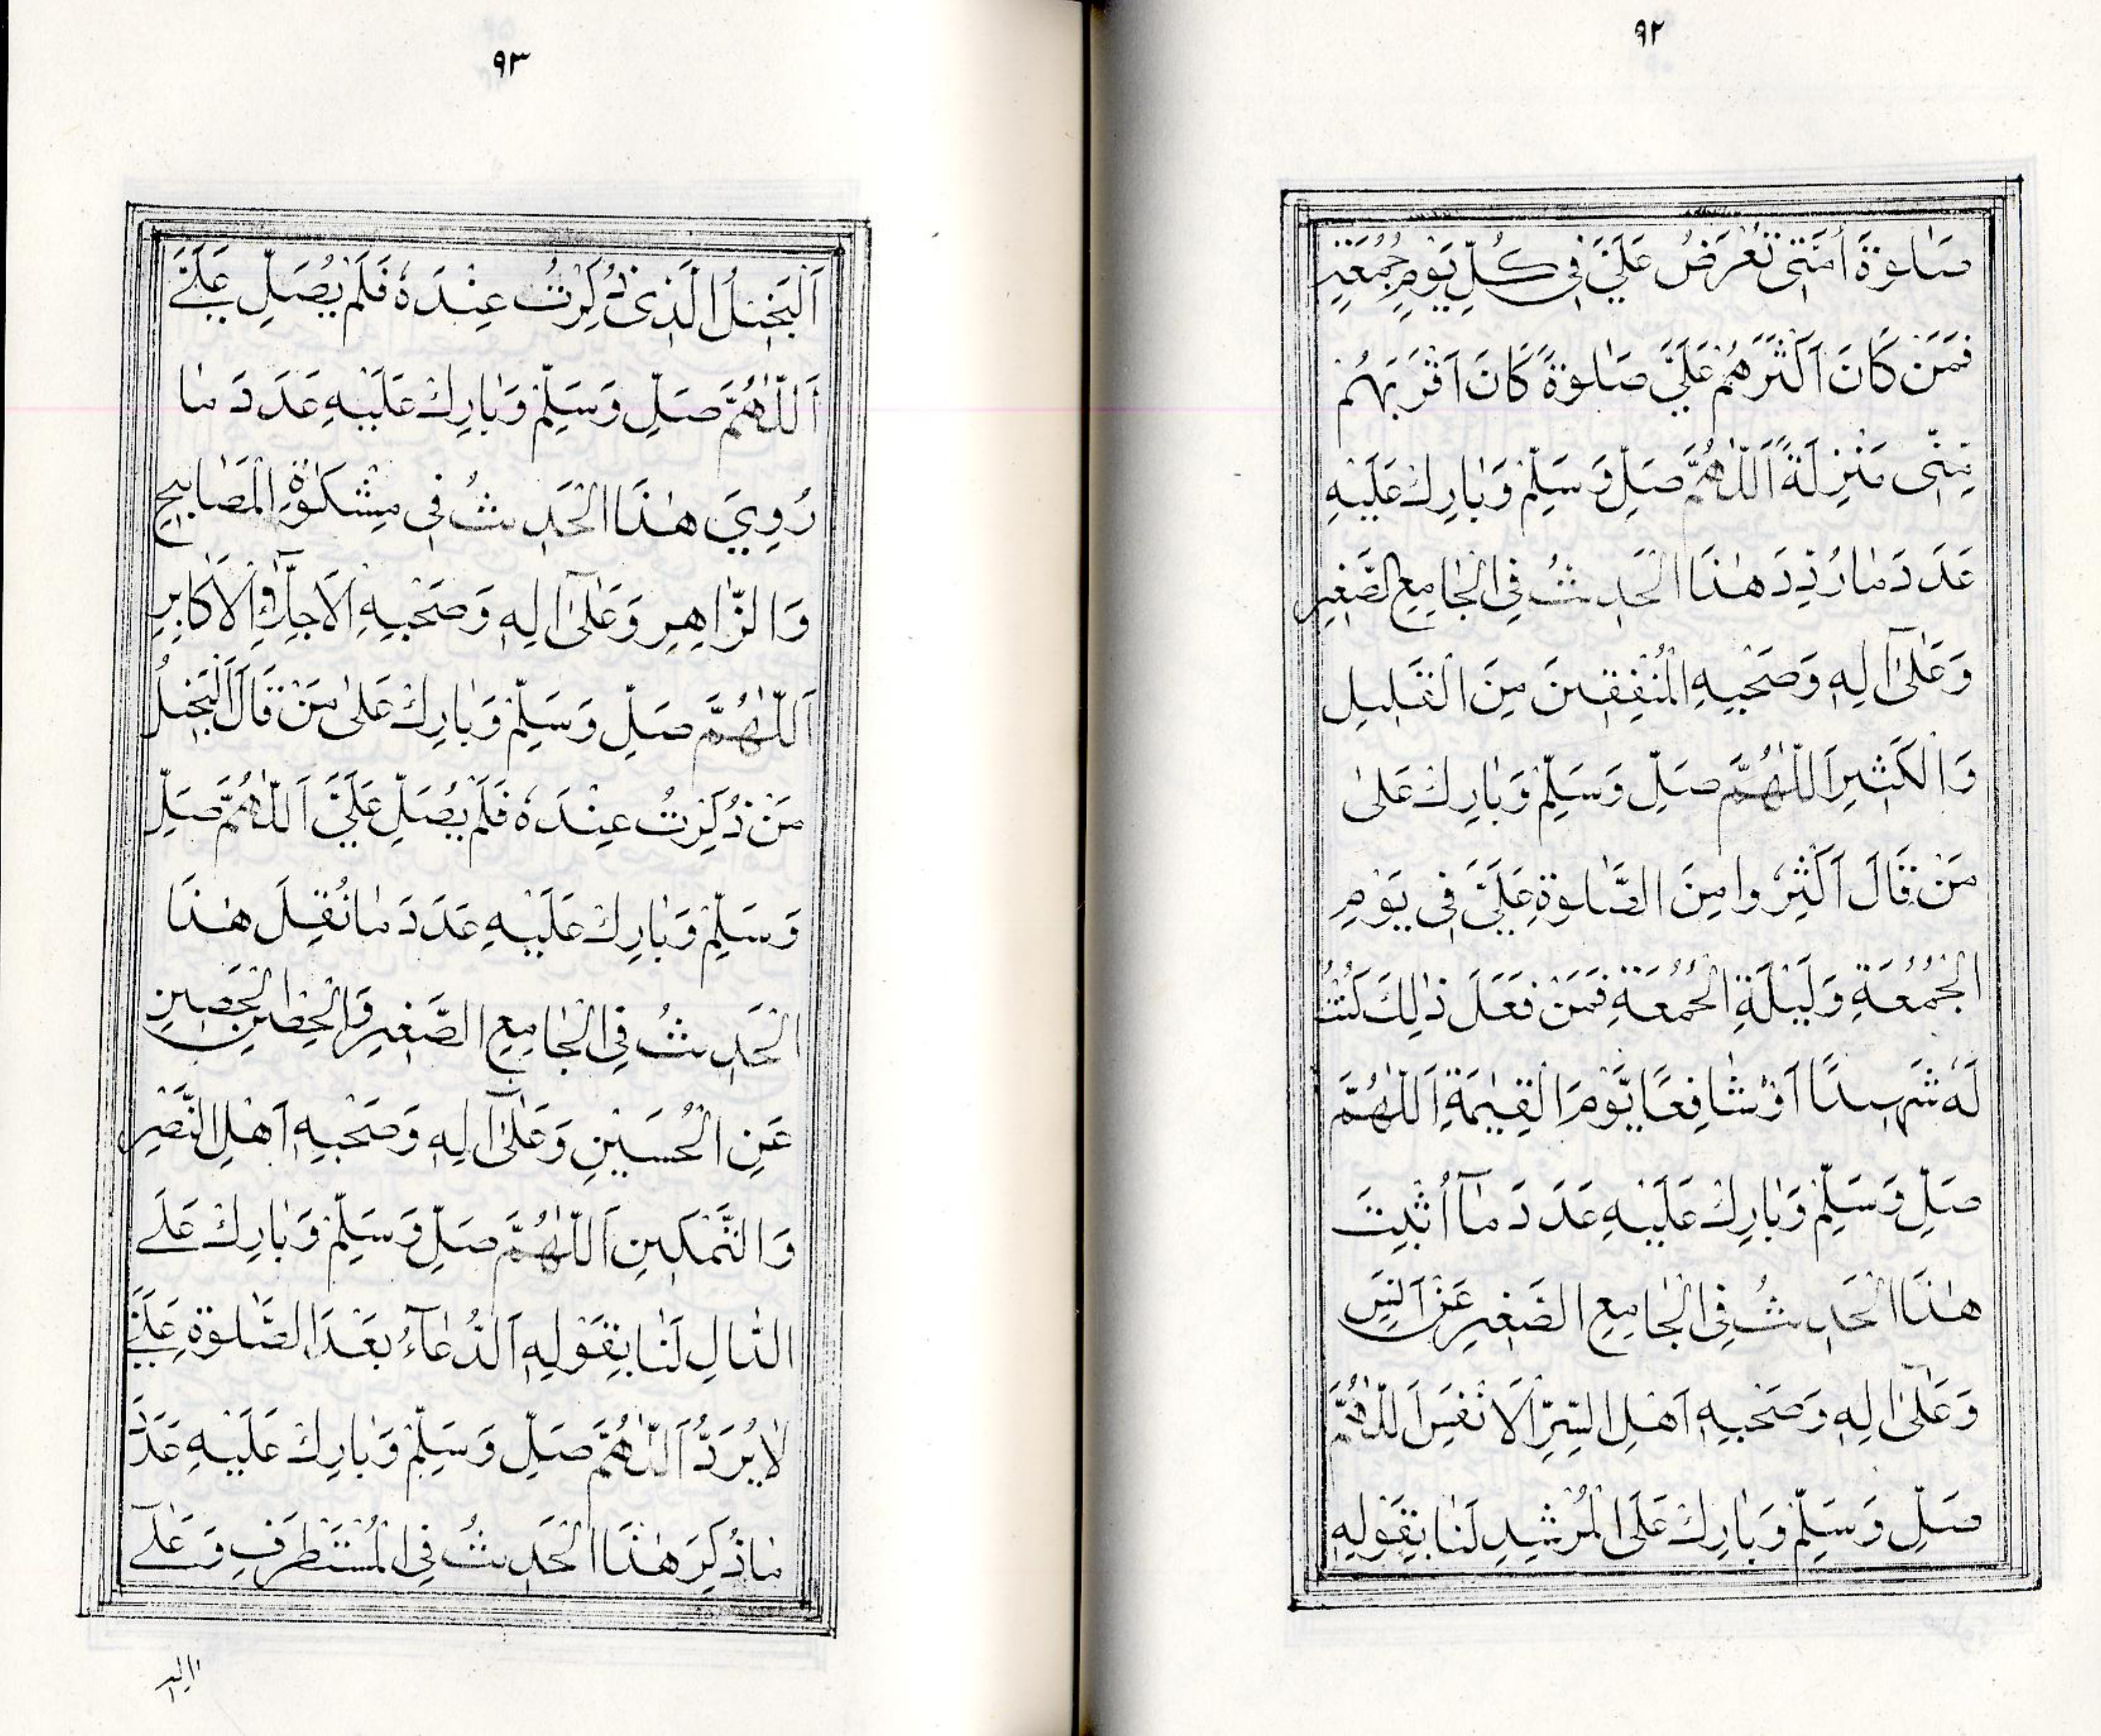 ٩٢
صَلٰوةَ أُمَّتِي تُعْرَضُ عَلَيَّ فِي كُلِّ يَوْمِ جُمُعَةٍ
فَمَنْ كَانَ اَكْثَرَهُمْ عَلَيَّ صَلٰوةً كَانَ اَقْرَبَهُمْ
مِنِّى مَنْزِلَةً اَللّٰهُمَّ صَلِّ وَسَلِّمْ وَبَارِكْ عَلَيْهِ
عَدَدَ مَا رُدِّدَ هٰذَا الْحَدِيثُ فِي الْجَامِعِ الصَّغِيرِ
وَعَلٰى اٰلِهٖ وَصَحْبِهِ الْمُنْفِقِينَ مِنَ الْقَلِيلِ
وَالْكَثِيرِ اَللّٰهُمَّ صَلِّ وَسَلِّمْ وَبَارِكْ عَلٰى
مَنْ قَالَ اَكْثِرُوا مِنَ الصَّلٰوةِ عَلَيَّ فِى يَوْمِ
الْجُمُعَةِ وَلَيْلَةِ الْجُمُعَةِ فَمَنْ فَعَلَ ذٰلِكَ كُنْتُ
لَهُ شَهِيدًا اَوْ شَافِعًا يَّوْمَ الْقِيٰمَةِ اَللّٰهُمَّ
صَلِّ وَسَلِّمْ وَبَارِكْ عَلَيْهِ عَدَدَ مَآ اُثْبِتَ
هٰذَا الْحَدِيثُ فِي الْجَامِعِ الصَّغِيرِ عَنْ اَنَسٍ
وَعَلٰى اٰلِهٖ وَصَحْبِهٖ اَهْلِ السِّرِّ الْاَنْفَسِ اَللّٰهُمَّ
صَلِّ وَسَلِّمْ وَبَارِكْ عَلَى الْمُرْشِدِ لَنَا بِقَوْلِهٖ
٩٣
اَلْبَخِيلُ الَّذِى ذُكِرْتُ عِنْدَهٗ فَلَمْ يُصَلِّ عَلَيَّ
اَللّٰهُمَّ صَلِّ وَسَلِّمْ وَبَارِكْ عَلَيْهِ عَدَدَ مَا
رُوِيَ هٰذَا الْحَدِيثُ فِى مِشْكٰوةِ الْمَصَابِيحِ
وَالزَّاهِرِ وَعَلٰى اٰلِهٖ وَصَحْبِهِ الْاَجِلَّآءِ وَالْاَكَابِرِ
اَللّٰهُمَّ صَلِّ وَسَلِّمْ وَبَارِكْ عَلٰى مَنْ قَالَ اَلْبَخِيلُ
مَنْ ذُكِرْتُ عِنْدَهٗ فَلَمْ يُصَلِّ عَلَيَّ اَللّٰهُمَّ صَلِّ
وَسَلِّمْ وَبَارِكْ عَلَيْهِ عَدَدَ مَا نُقِلَ هٰذَا
الْحَدِيثُ فِي الْجَامِعِ الصَّغِيرِ وَالْحِصْنِ الْحَصِينِ
عَنِ الْحُسَيْنِ وَعَلٰى اٰلِهٖ وَصَحْبِهٖ اَهْلِ النَّصْرِ
وَالتَّمْكِينِ اَللّٰهُمَّ صَلِّ وَسَلِّمْ وَبَارِكْ عَلَى
الدَّالِ لَنَا بِقَوْلِهٖ اَلدُّعَآءُ بَعْدَ الصَّلٰوةِ عَلَيَّ
لَا يُرَدُّ اَللّٰهُمَّ صَلِّ وَسَلِّمْ وَبَارِكْ عَلَيْهِ عَدَدَ
مَا ذُكِرَ هٰذَا الْحَدِيثُ فِي الْمُسْتَطْرَفِ وَعَلٰى